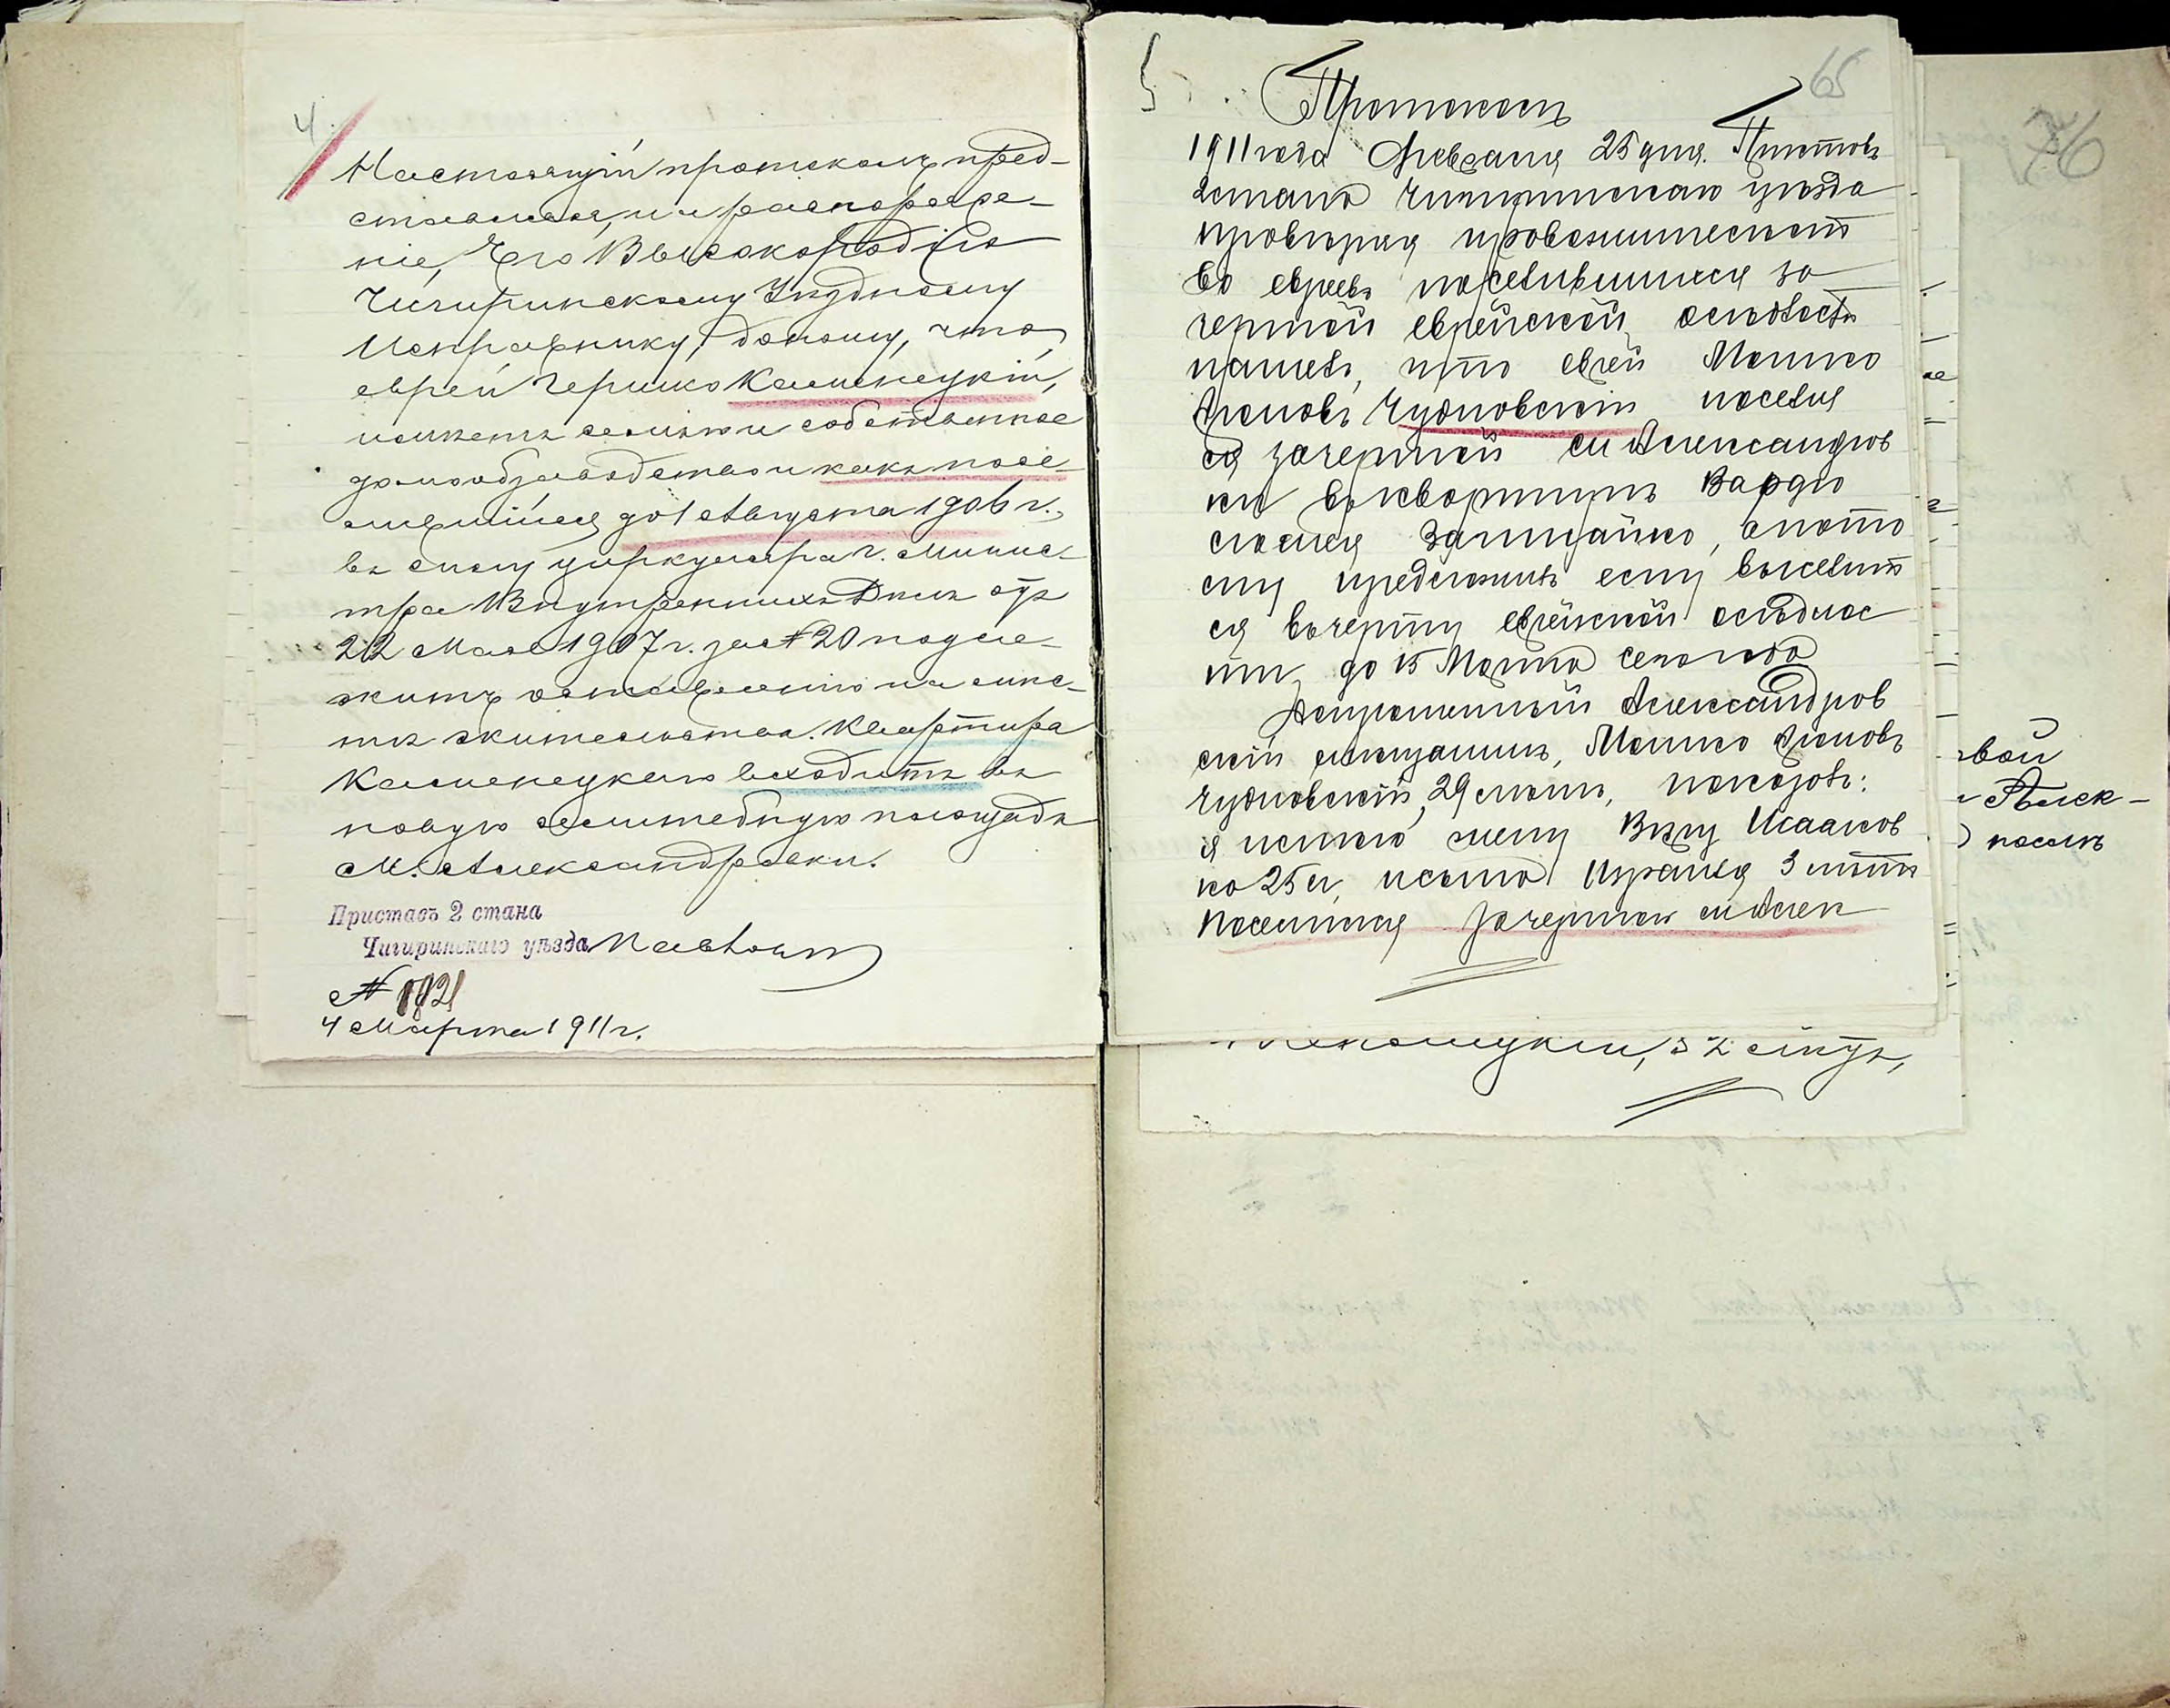 4.
Настоящій протоколъ пред-
ставляя, на распоряже-
ніе, Его Высокородію
Чигиринскому Уѣздному
Исправнику, доношу, что
еврей Гершко Каменецкій,
имѣетъ семью и собственное
домообзаводство и какъ посе-
лившійся до 1 Августа 1906 г.,
въ силу циркуляра г. Минис-
тра Внутреннихъ Дѣлъ отъ
22 Мая 1907 г. за № 20 подле-
житъ оставленію на мѣс-
тѣ жительства. Квартира
Каменецкаго входитъ въ
новую селитебную площадь
М. Александровки.
Приставъ 2 стана
Чигиринскаго уѣзда
№ 1821
4 Марта 1911 г.
5
65
Протоколъ
1911 года Февраля 25 дня. Приставъ
2 стана Чигиринскаго уѣзда
провѣряя правожительст
во евреевъ поселившихся за
чертой еврейской осѣдлости
нашелъ, что еврей Мошко
Чудновскій поселил
ся за чертой си Александров
ки въ квартирѣ
, апото
му предложилъ ему выселит
ся въ черту еврейской осѣдлос
ти до 15 Марта сего года
Спрошенный Александров
скій мѣщанинъ, Мошко
Чудновскій, 29 лѣтъ, показалъ:
я имѣю жену Исааков
ко 25 л, исына Израиля 3 лѣтъ
поселился за чертой си Алек
76
вой
Алек-
поселъ
32 лѣтъ,